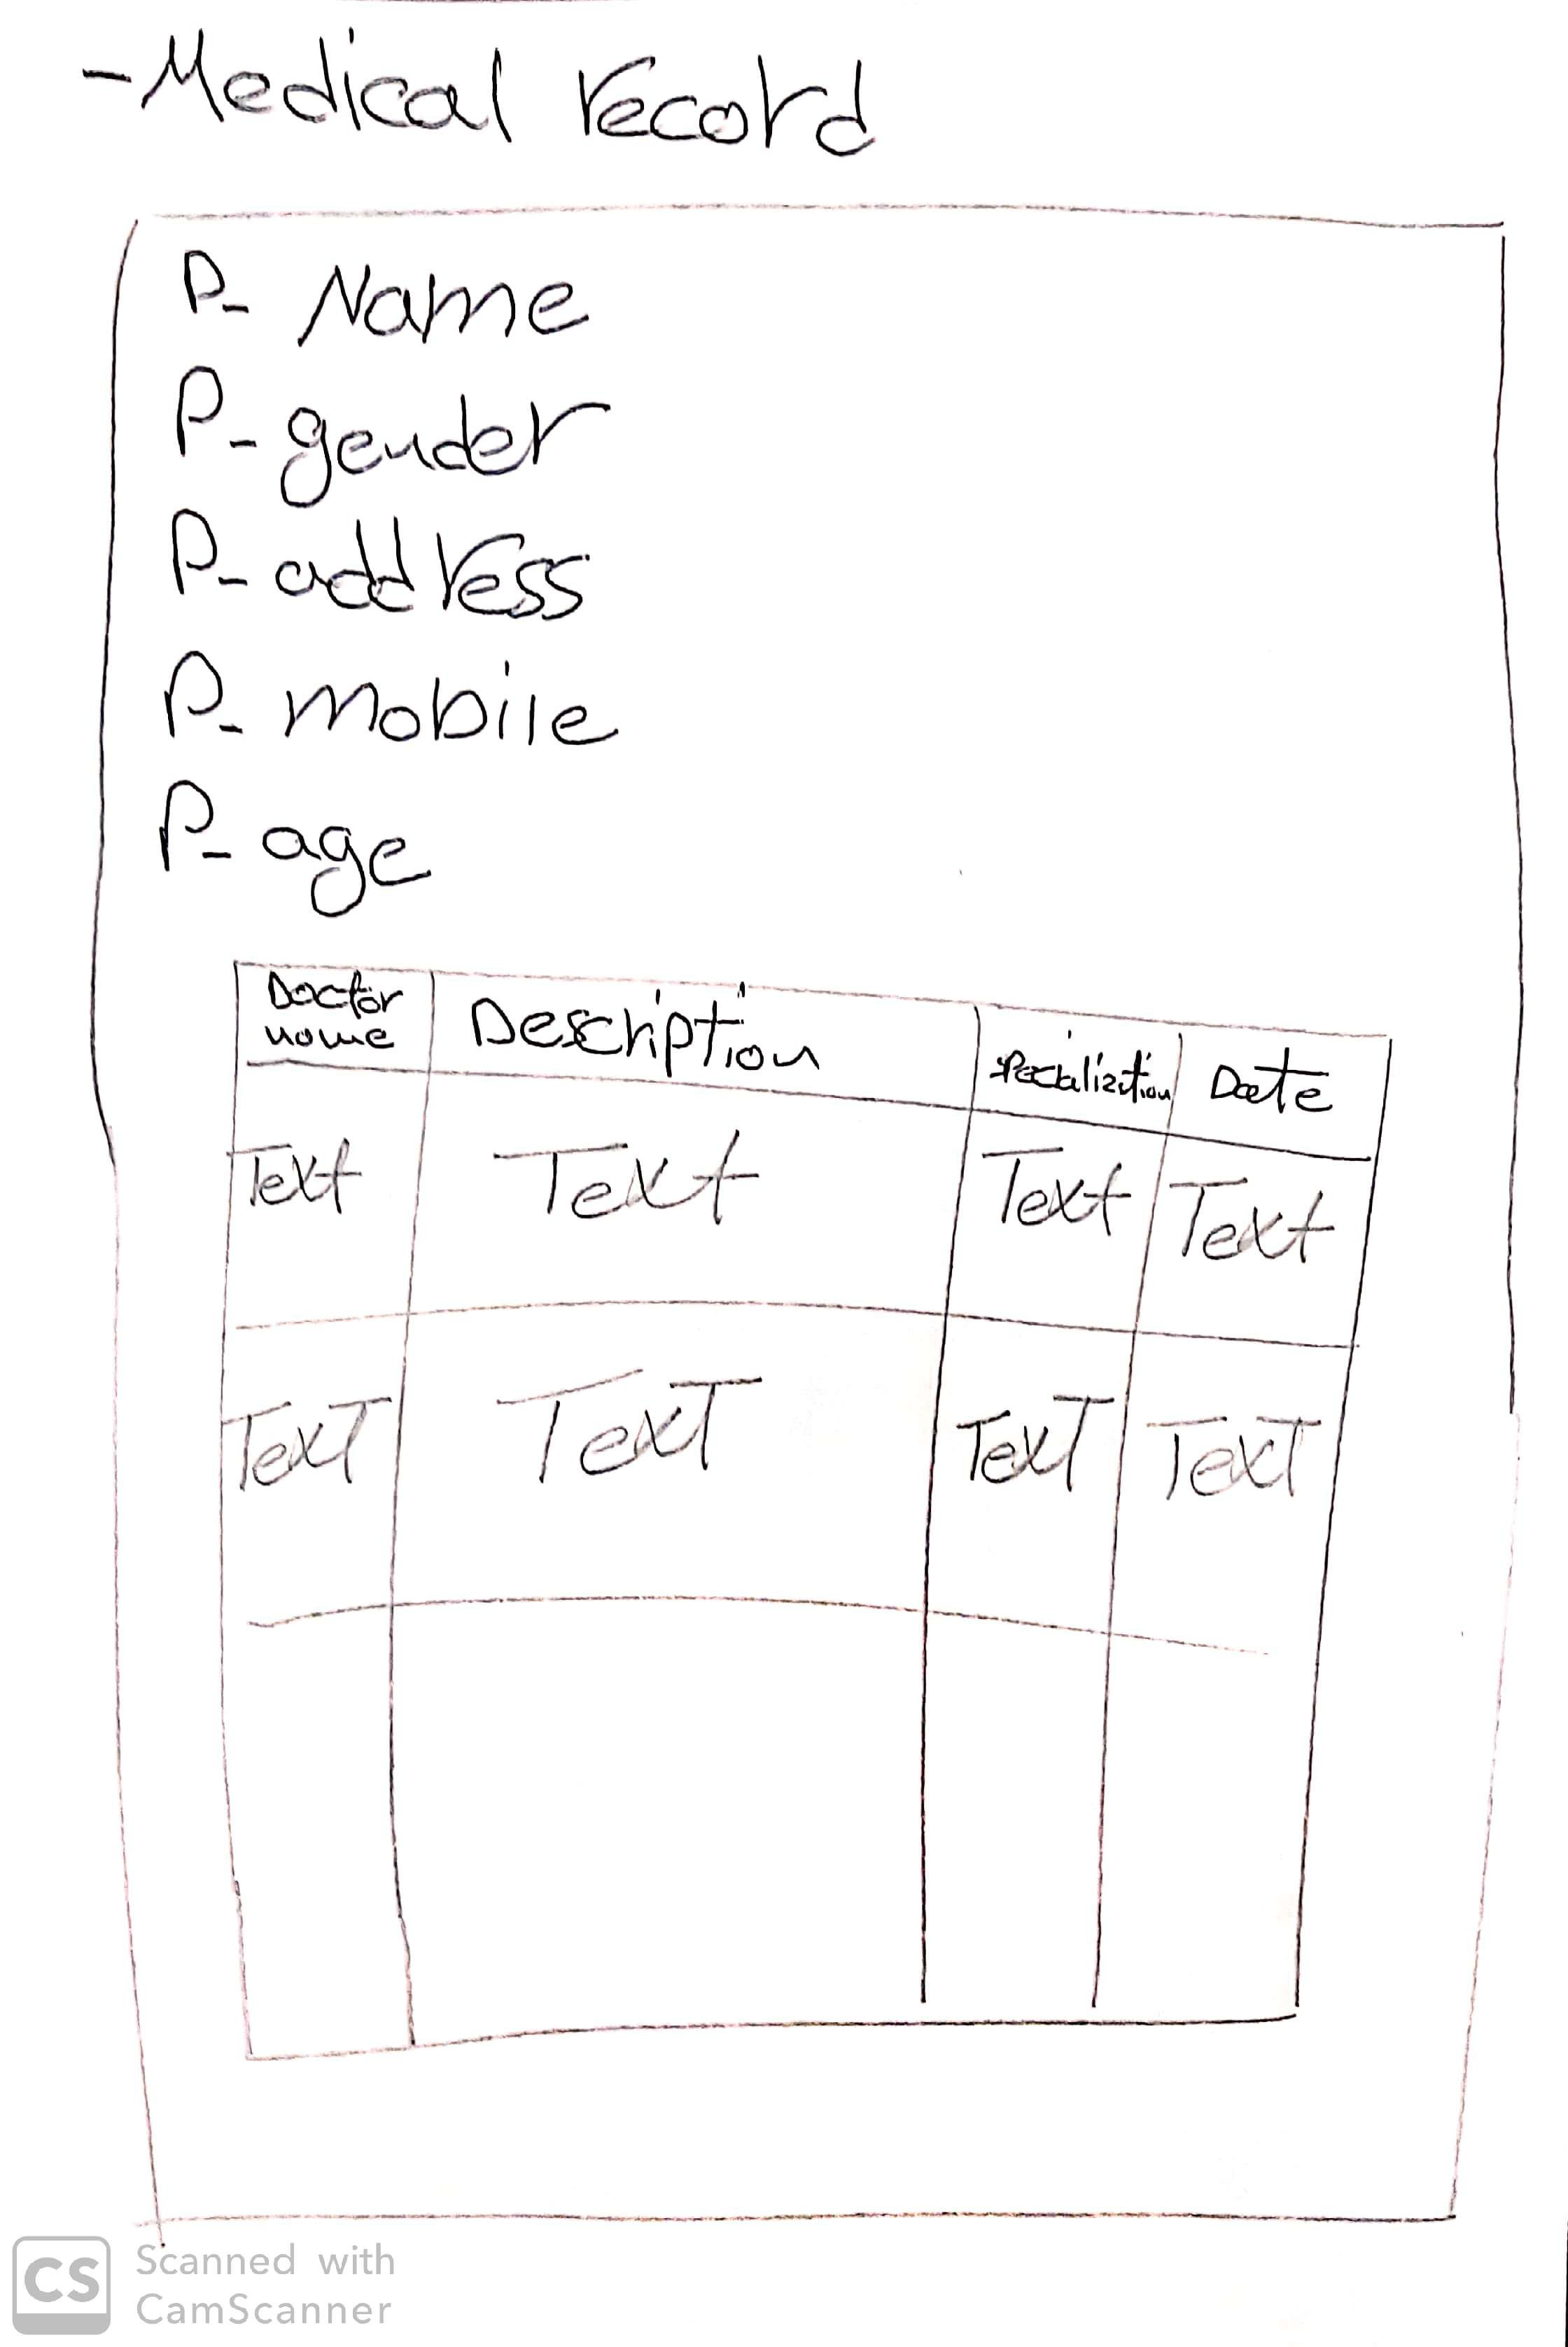 -Medical record
P- Name
P- gender
P- address
P- mobile
P- age
Doctor name Description specializtion Date
Text Text Text Text
Text Text Text Text
CS Scanned with
CamScanner